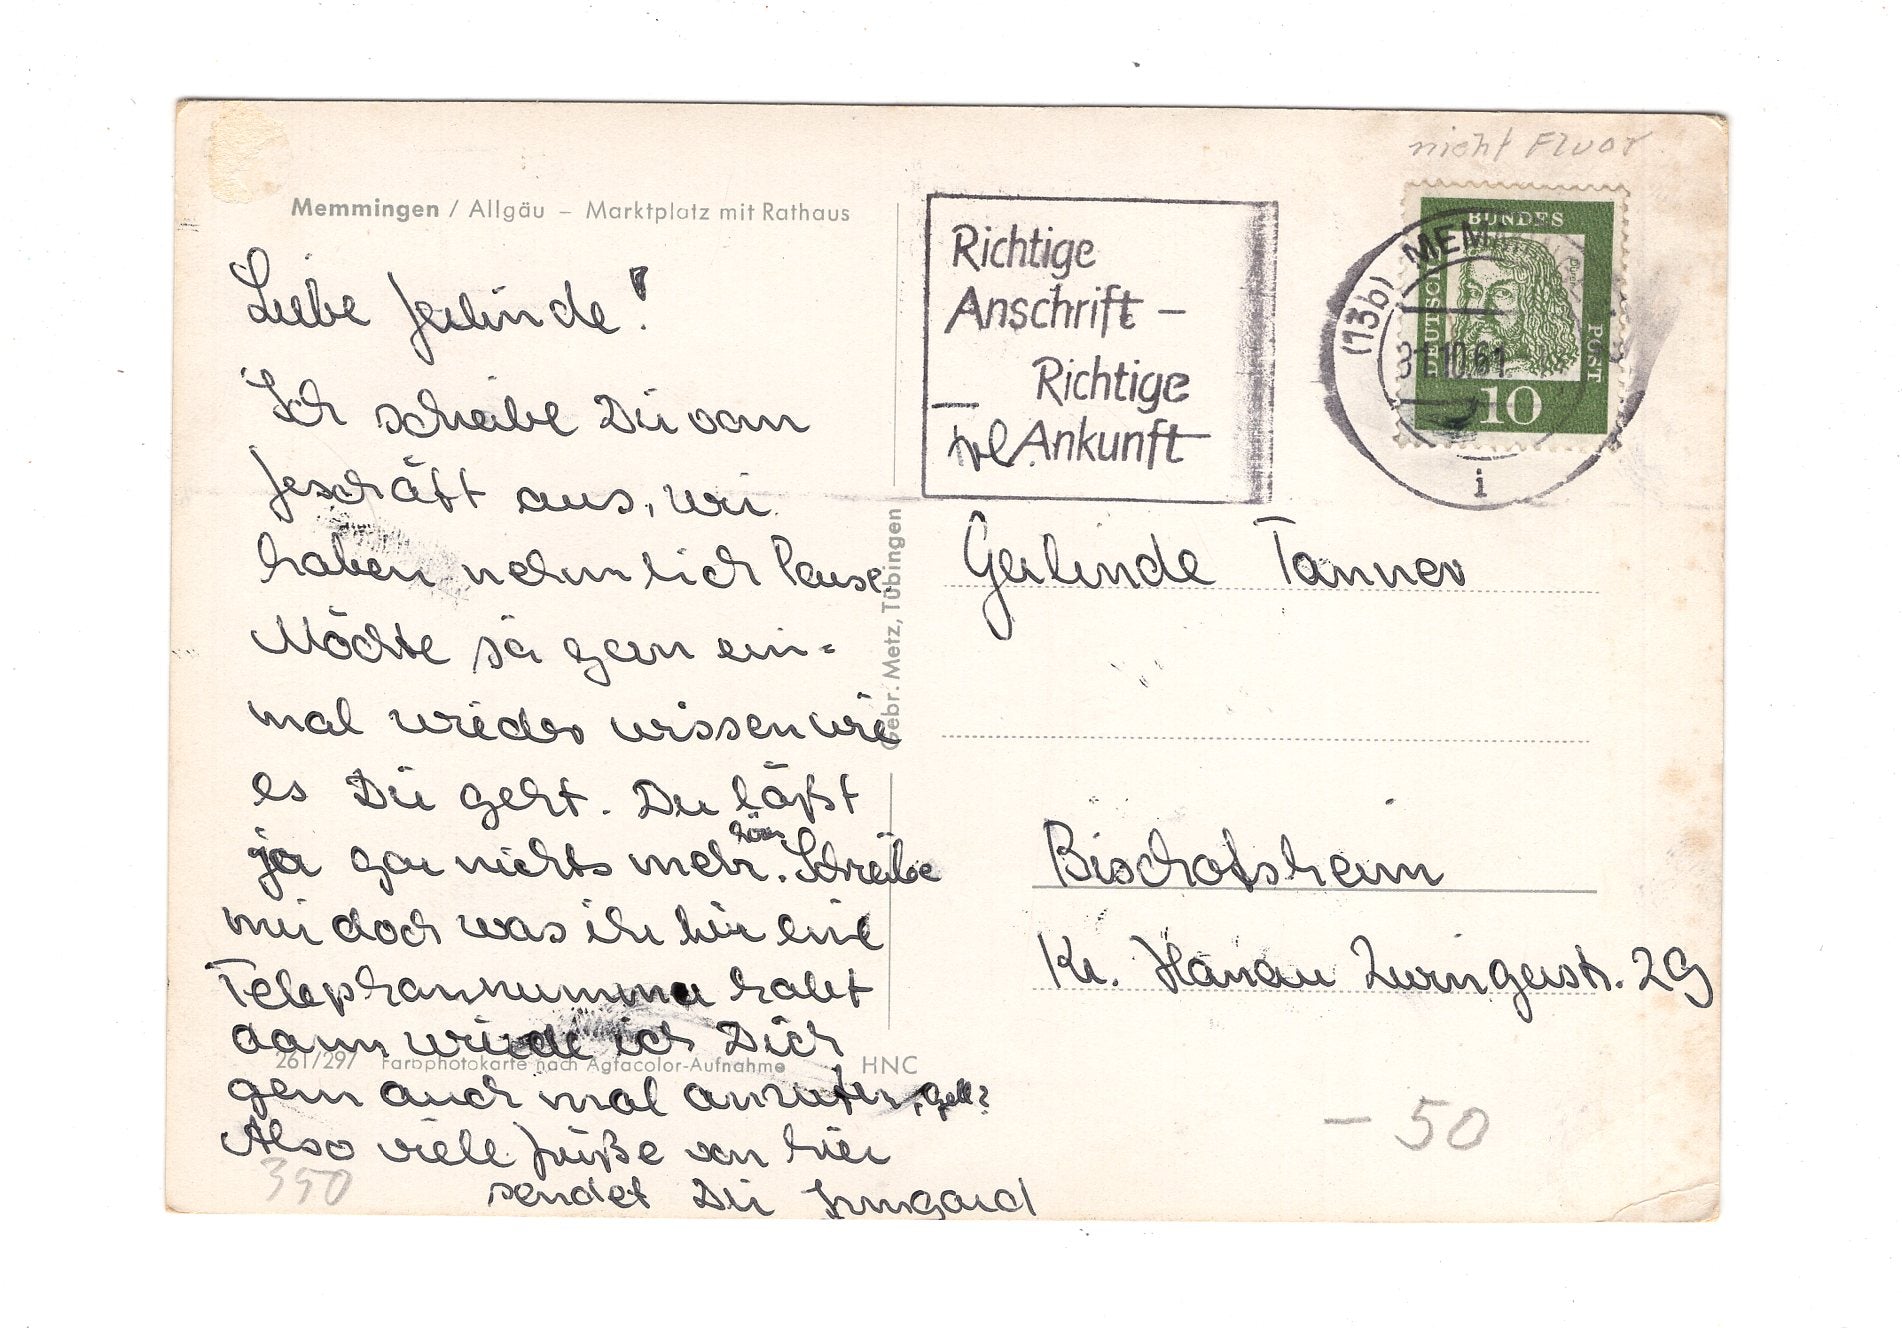 nicht Fluor
Memmingen / Allgäu – Marktplatz mit Rathaus
Richtige
Anschrift –
Richtige
Ankunft
(13b) MEM
31.10.61
i
DEUTSCHE
BUNDES
POST
10
Liebe Gerlinde!
Ich schreibe Dir vom
Geschäft aus, wir
haben nehmlich Pause.
Möchte ja gern ein=
mal wieder wissen wie
es Dir geht. Du läßt
ja gar nichts mehr hören. Schreibe
mir doch was ihr hier eine
Telephonnummer habt
dann würde ich Dich
gern auch mal anrufen, gell?
Also viele Grüße von hier
sendet Dir Irmgard
Gebr. Metz, Tübingen
Frl
Gerlinde Tanner
Bischofsheim
Kr. Hanau Zwingerstr. 29
261/297 Farbphotokarte nach Agfacolor-Aufnahme HNC
350
– 50